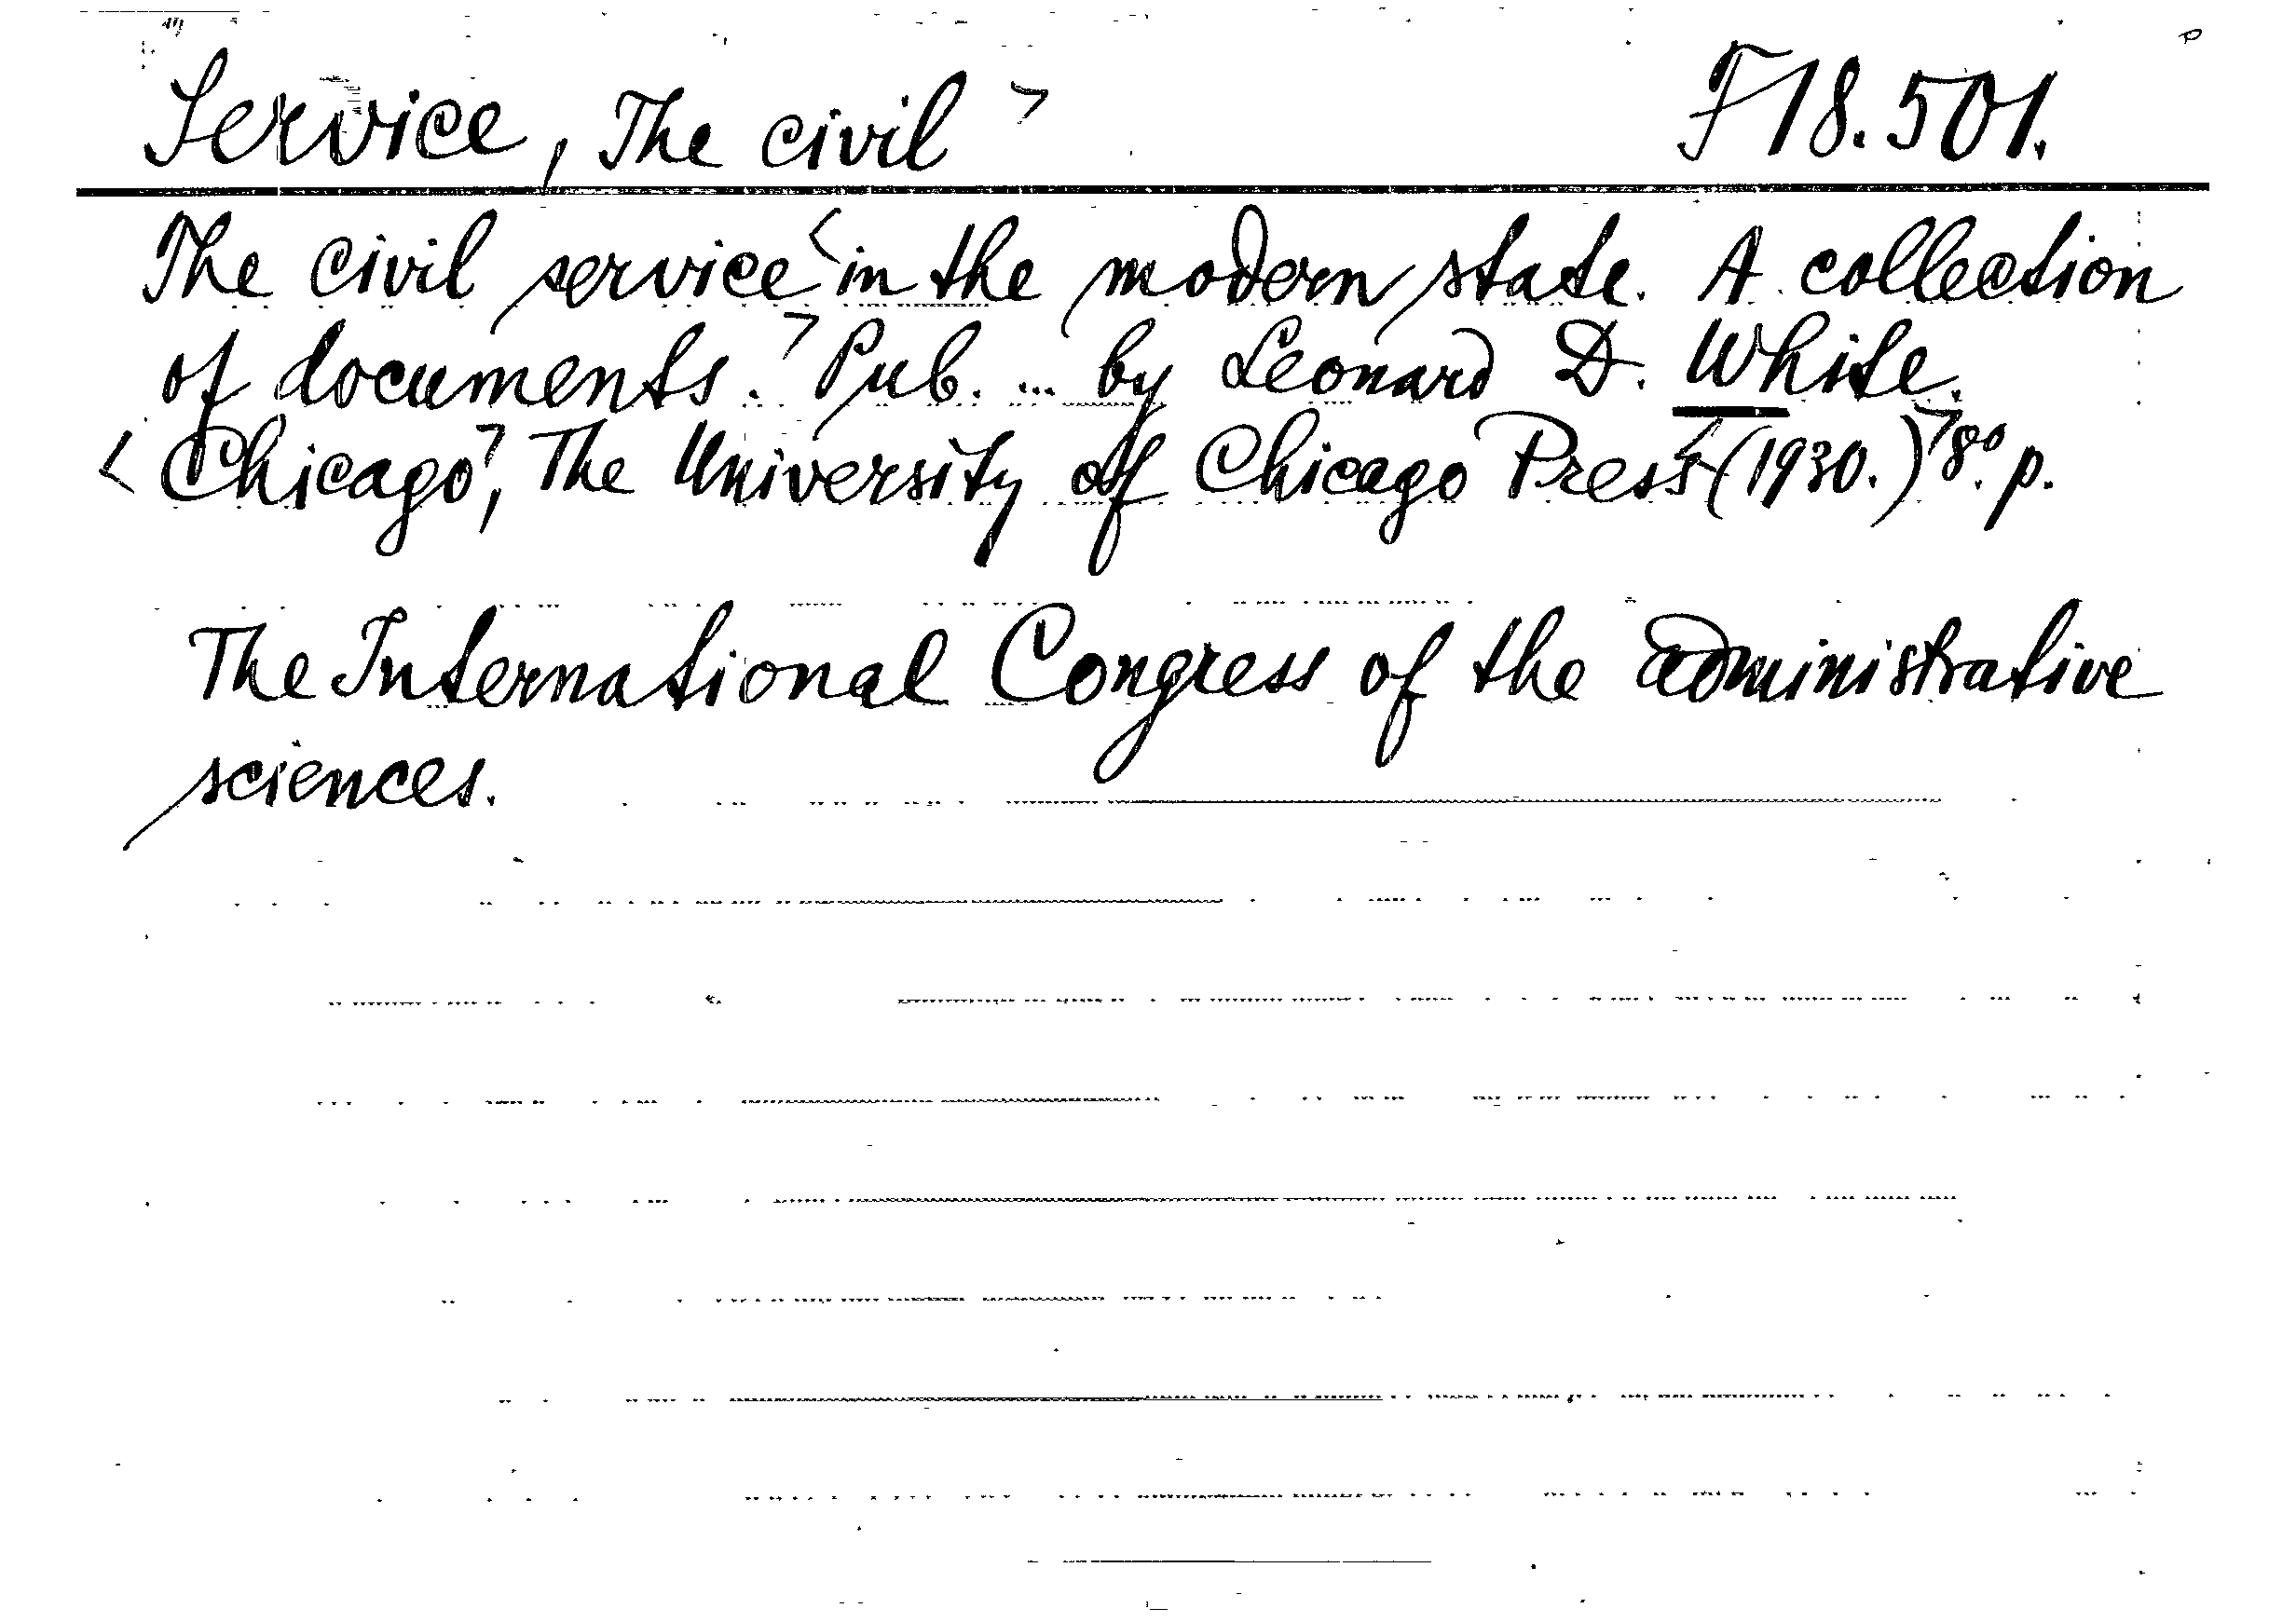 Service, The civil > F18.501.
The civil service < in the modern state. A collection
of documents. > Pub. ... by Leonard D. White.
< Chicago >, The University of Chicago Press < (1930.) > 8°. p.
The International Congress of the administrative
sciences.